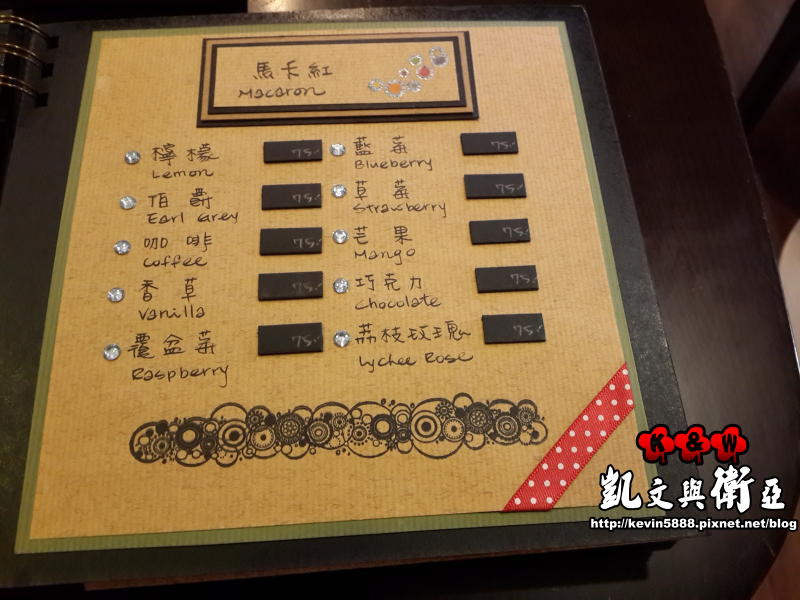 馬卡紅
Macaron
檸檬 75.-
Lemon
伯爵 75.-
Earl Grey
咖啡 75.-
Coffee
香草 75.-
Vanilla
覆盆莓 75.-
Raspberry
藍莓 75.-
Blueberry
草莓 75.-
Strawberry
芒果 75.-
Mango
巧克力 75.-
Chocolate
荔枝玫瑰 75.-
Lychee Rose
K&W
凱文與衛亞
http://kevin5888.pixnet.net/blog